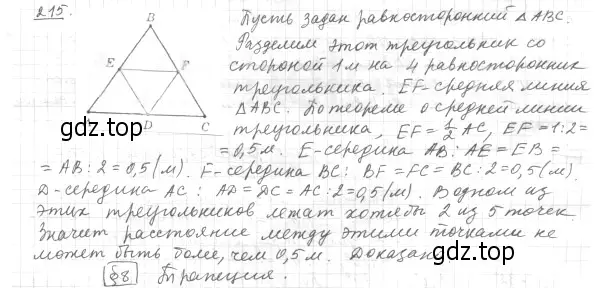 215.
Пусть задан равносторонний △ABC.
Разделим этот треугольник со
стороной 1 м на 4 равносторонних
треугольника. EF-средняя линия
△ABC. По теореме о средней линии
треугольника, EF = 1/2 AC, EF = 1:2=
= 0,5 м. E-середина AB: AE = EB =
= AB : 2 = 0,5 (м). F-середина BC: BF = FC = BC : 2 = 0,5 (м).
D-середина AC: AD = DC = AC : 2 = 0,5 (м). В одном из
этих треугольников лежат хотябы 2 из 5 точек.
Значит расстояние между этими точками не
может быть более, чем 0,5 м. Доказан
§8. Трапеция.
B
E
F
D
C
gdz.top
gdz.top
gdz.top
gdz.top